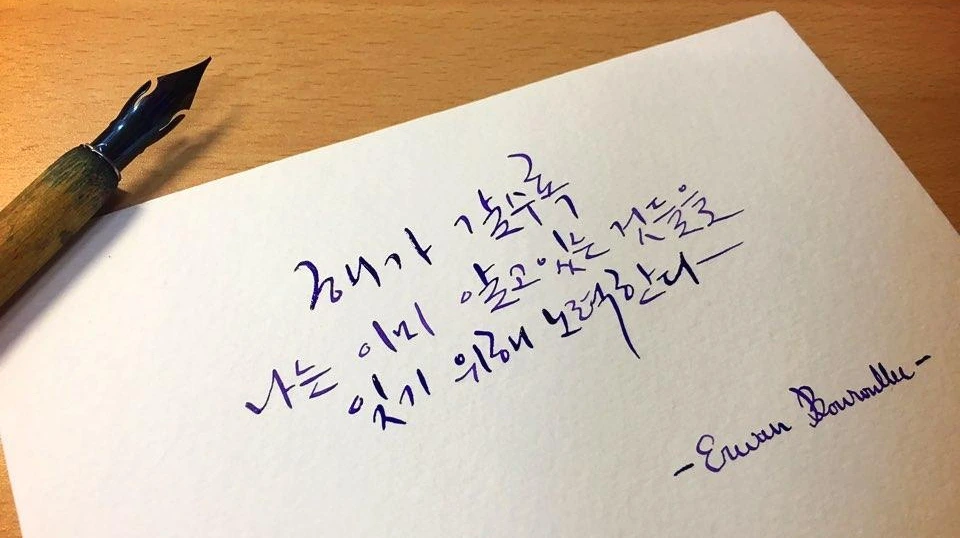 해가 갈수록
나는 이미 알고있는 것들을
잊기 위해 노력한다
- Erwan Bouroullec -